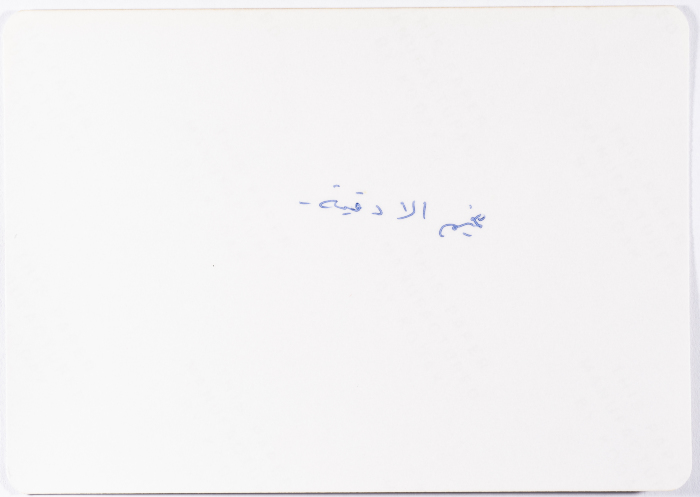 مخيم الادقية -